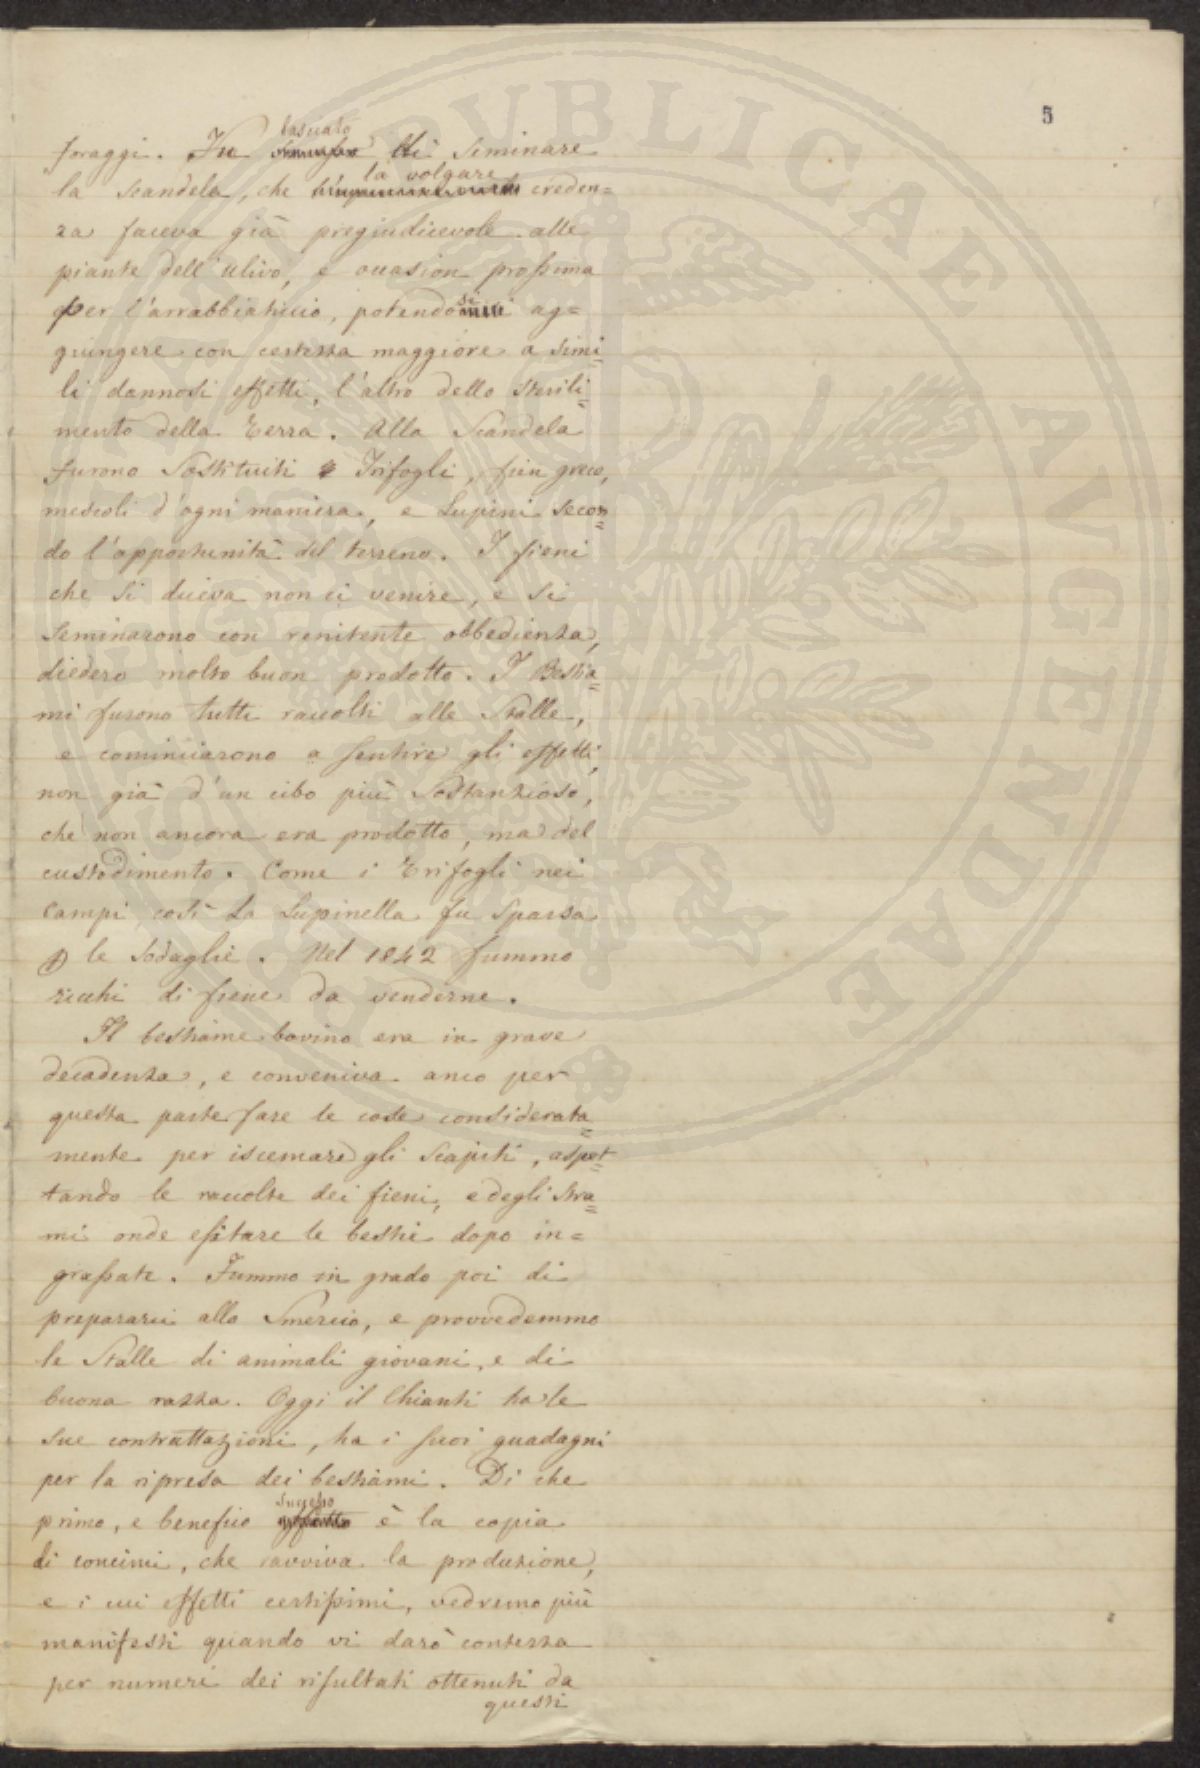 5
foraggi. Fu lasciato di seminare
la scandela, che la volgare creden=
za faceva già pregiudicevole alle
piante dell'ulivo, e occasion prossima
per l'arrabbiaticcio, potendosi ag=
giungere con certezza maggiore a simi=
li dannosi effetti, l'altro dello sterili=
mento della Terra. Alla Scandela
furono Sostituiti Trifogli, fien greco,
mescoli d'ogni maniera, e Lupini secon=
do l'opportunità del terreno. I fieni
che si diceva non ci venire, e si
Seminarono con renitente obbedienza,
diedero molto buon prodotto. I Bestia=
mi furono tutti raccolti alle Stalle,
e cominciarono a sentire gli effetti,
non già d'un cibo più Sostanzioso,
che non ancora era prodotto, ma del
custodimento. Come i Trifogli nei
Campi, così La Lupinella fu Sparsa
le Sodaglie. Nel 1842 fummo
ricchi di fieno da venderne.
Il bestiame bovino era in grave
decadenza, e conveniva anco per
questa parte fare le cose considerata=
mente per iscemare gli Scapiti, aspet=
tando le raccolte dei fieni, e degli stra=
mi onde esitare le bestie dopo in=
grassate. Fummo in grado poi di
prepararci allo Smercio, e provvedemmo
le Stalle di animali giovani, e di
buona razza. Oggi il Chianti ha le
sue contrattazioni, ha i suoi guadagni
per la ripresa dei bestiami. Di che
primo, e benefico successo è la copia
di concimi, che ravviva la produzione,
e i cui effetti certissimi, vedremo più
manifesti quando vi darò contezza
per numeri dei risultati ottenuti da
questi
PUBLICAE AVGENDAE